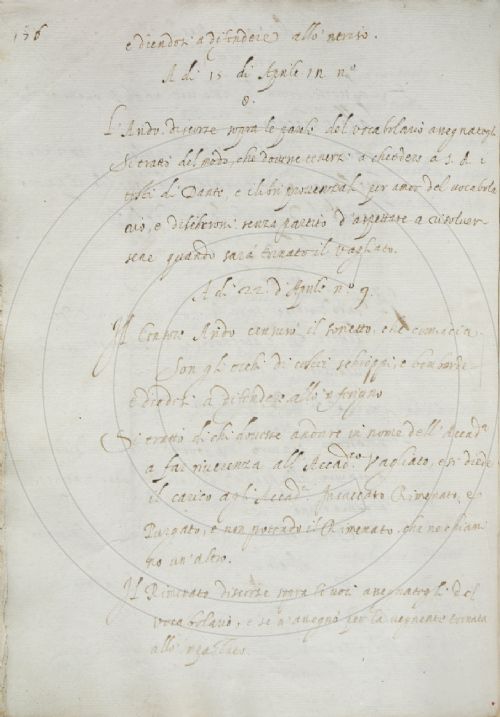 156
e diedesi a difendere allo nerito.
A dì 15 di Aprile in nº
8.
L'Ardo discorse sopra le parole del vocabolario assegnatogli
Si trattò del modo, che dovesse tenersi a chiedere a S. A. i
testi di Dante, e i libri provenzali per amor del vocabola
rio, e
senza partito d'aspettare a risolver
sene quando sarà tornato il Vagliato.
A dì 22 d'Aprile nº 9.
Il Censore Ardo censurò il sonetto, che comincia
Son gli occhi di
e bombarde
e diedesi a difendere allo
Si trattò di chi dovesse andare in nome dell'Accad.ª
a far riverenza all'Accad.co Vagliato, e si diede
il carico agli Accad.
Rimenato, e
Purgato, e non potendo il Rimenato, che ne chiami
no un'altro.
Il Rimenato discorse sopra le voci assegnatogli del
vocabolario, e se n'assegnò per la vegnente tornata
allo